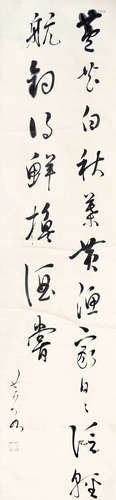 芦花白秋叶黄渔家日日泛轻
航钓得鲜换酒尝